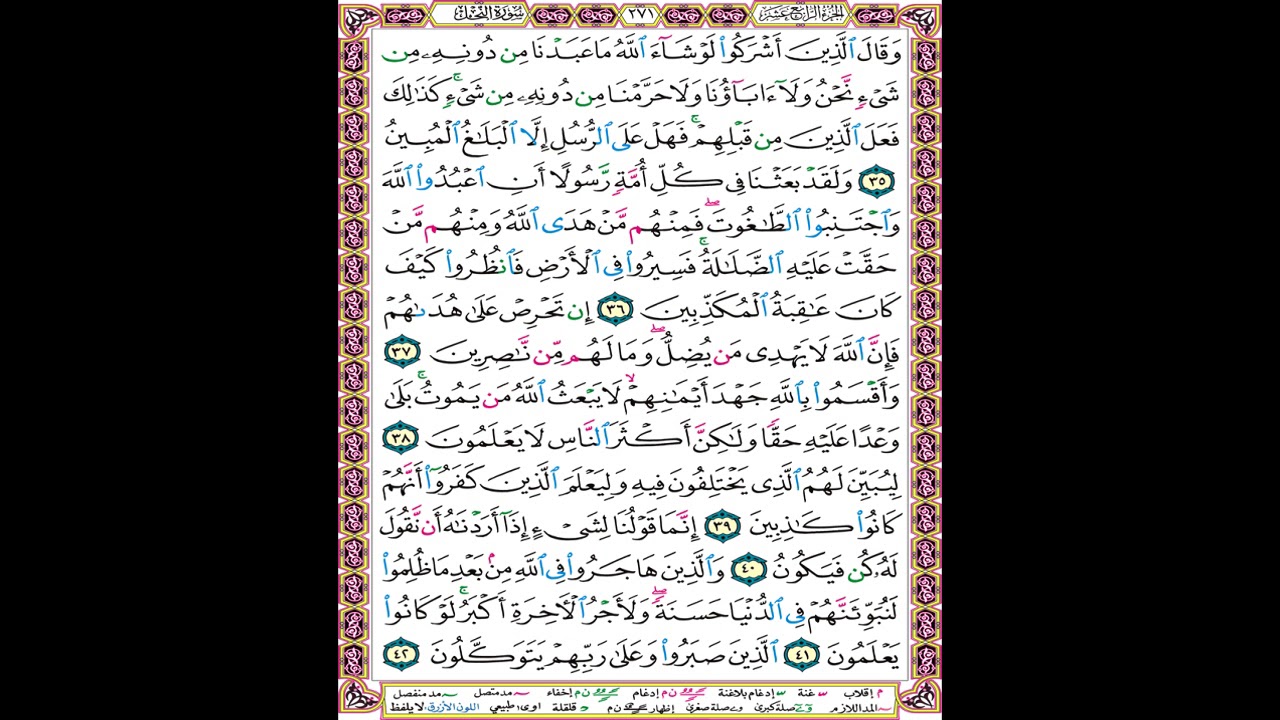 سورة النحل ٢٧١ الجزء الرابع عشر
وَقَالَ ٱلَّذِينَ أَشْرَكُوا۟ لَوْ شَآءَ ٱللَّهُ مَا عَبَدْنَا مِن دُونِهِۦ مِن
شَىْءٍ نَّحْنُ وَلَآ ءَابَآؤُنَا وَلَا حَرَّمْنَا مِن دُونِهِۦ مِن شَىْءٍ ۚ كَذَٰلِكَ
فَعَلَ ٱلَّذِينَ مِن قَبْلِهِمْ ۚ فَهَلْ عَلَى ٱلرُّسُلِ إِلَّا ٱلْبَلَٰغُ ٱلْمُبِينُ
٣٥ وَلَقَدْ بَعَثْنَا فِى كُلِّ أُمَّةٍ رَّسُولًا أَنِ ٱعْبُدُوا۟ ٱللَّهَ
وَٱجْتَنِبُوا۟ ٱلطَّٰغُوتَ ۖ فَمِنْهُم مَّنْ هَدَى ٱللَّهُ وَمِنْهُم مَّنْ
حَقَّتْ عَلَيْهِ ٱلضَّلَٰلَةُ ۚ فَسِيرُوا۟ فِى ٱلْأَرْضِ فَٱنظُرُوا۟ كَيْفَ
كَانَ عَٰقِبَةُ ٱلْمُكَذِّبِينَ ٣٦ إِن تَحْرِصْ عَلَىٰ هُدَىٰهُمْ
فَإِنَّ ٱللَّهَ لَا يَهْدِى مَن يُضِلُّ ۖ وَمَا لَهُم مِّن نَّٰصِرِينَ ٣٧
وَأَقْسَمُوا۟ بِٱللَّهِ جَهْدَ أَيْمَٰنِهِمْ ۙ لَا يَبْعَثُ ٱللَّهُ مَن يَمُوتُ ۚ بَلَىٰ
وَعْدًا عَلَيْهِ حَقًّا وَلَٰكِنَّ أَكْثَرَ ٱلنَّاسِ لَا يَعْلَمُونَ ٣٨
لِيُبَيِّنَ لَهُمُ ٱلَّذِى يَخْتَلِفُونَ فِيهِ وَلِيَعْلَمَ ٱلَّذِينَ كَفَرُوٓا۟ أَنَّهُمْ
كَانُوا۟ كَٰذِبِينَ ٣٩ إِنَّمَا قَوْلُنَا لِشَىْءٍ إِذَآ أَرَدْنَٰهُ أَن نَّقُولَ
لَهُۥ كُن فَيَكُونُ ٤٠ وَٱلَّذِينَ هَاجَرُوا۟ فِى ٱللَّهِ مِنۢ بَعْدِ مَا ظُلِمُوا۟
لَنُبَوِّئَنَّهُمْ فِى ٱلدُّنْيَا حَسَنَةً ۖ وَلَأَجْرُ ٱلْـَٔاخِرَةِ أَكْبَرُ ۚ لَوْ كَانُوا۟
يَعْلَمُونَ ٤١ ٱلَّذِينَ صَبَرُوا۟ وَعَلَىٰ رَبِّهِمْ يَتَوَكَّلُونَ ٤٢
م إقلاب غنة إدغام بلاغنة ن م إدغام ن م إخفاء مد متصل مد منفصل
المد اللازم صلة كبرى صلة صغرى إظهار ن م قلقلة اوى: طبيعي اللون الأزرق لا يلفظ